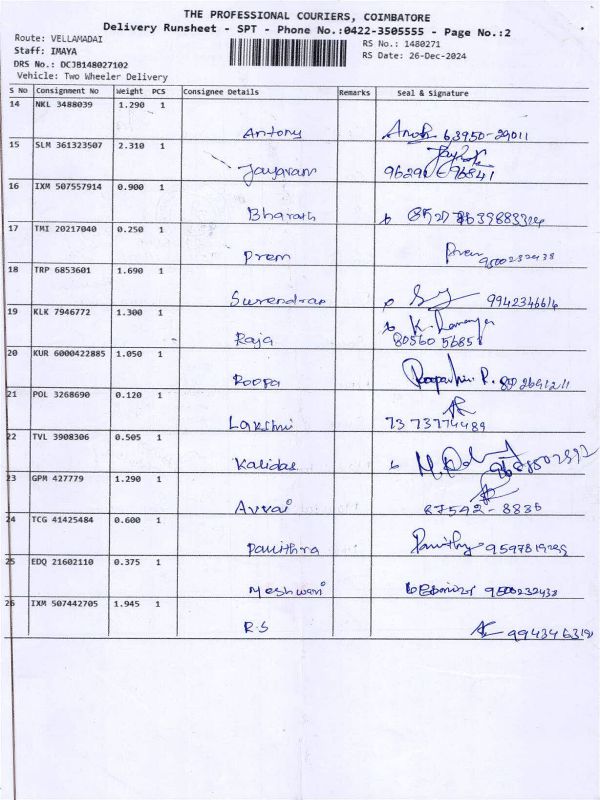 THE PROFESSIONAL COURIERS, COIMBATORE
Delivery Runsheet - SPT - Phone No.:0422-3505555 - Page No.:2
Route: VELLAMADAI
RS No.: 1480271
Staff: IMAYA
RS Date: 26-Dec-2024
DRS No.: DCJB148027102
Vehicle: Two Wheeler Delivery
S No Consignment No Weight PCS Consignee Details Remarks Seal & Signature
14 NKL 3488039 1.290 1
Antony 63950-29011
15 SLM 361323507 2.310 1
Jayaram
16 IXM 507557914 0.900 1
Bharath
17 TMI 20217040 0.250 1
Prem Prem 9500232438
18 TRP 6853601 1.690 1
Surendran 9942346616
19 KLK 7946772 1.300 1
Raja 80560 56858
20 KUR 6000422885 1.050 1
Roopa
21 POL 3268690 0.120 1
Lakshmi 73 73774489
22 TVL 3908306 0.505 1
Kalidas
23 GPM 427779 1.290 1
Avvai 87542-8836
24 TCG 41425484 0.600 1
Pavithra
25 EDQ 21602110 0.375 1
Meshwari 9500232438
26 IXM 507442705 1.945 1
R.S